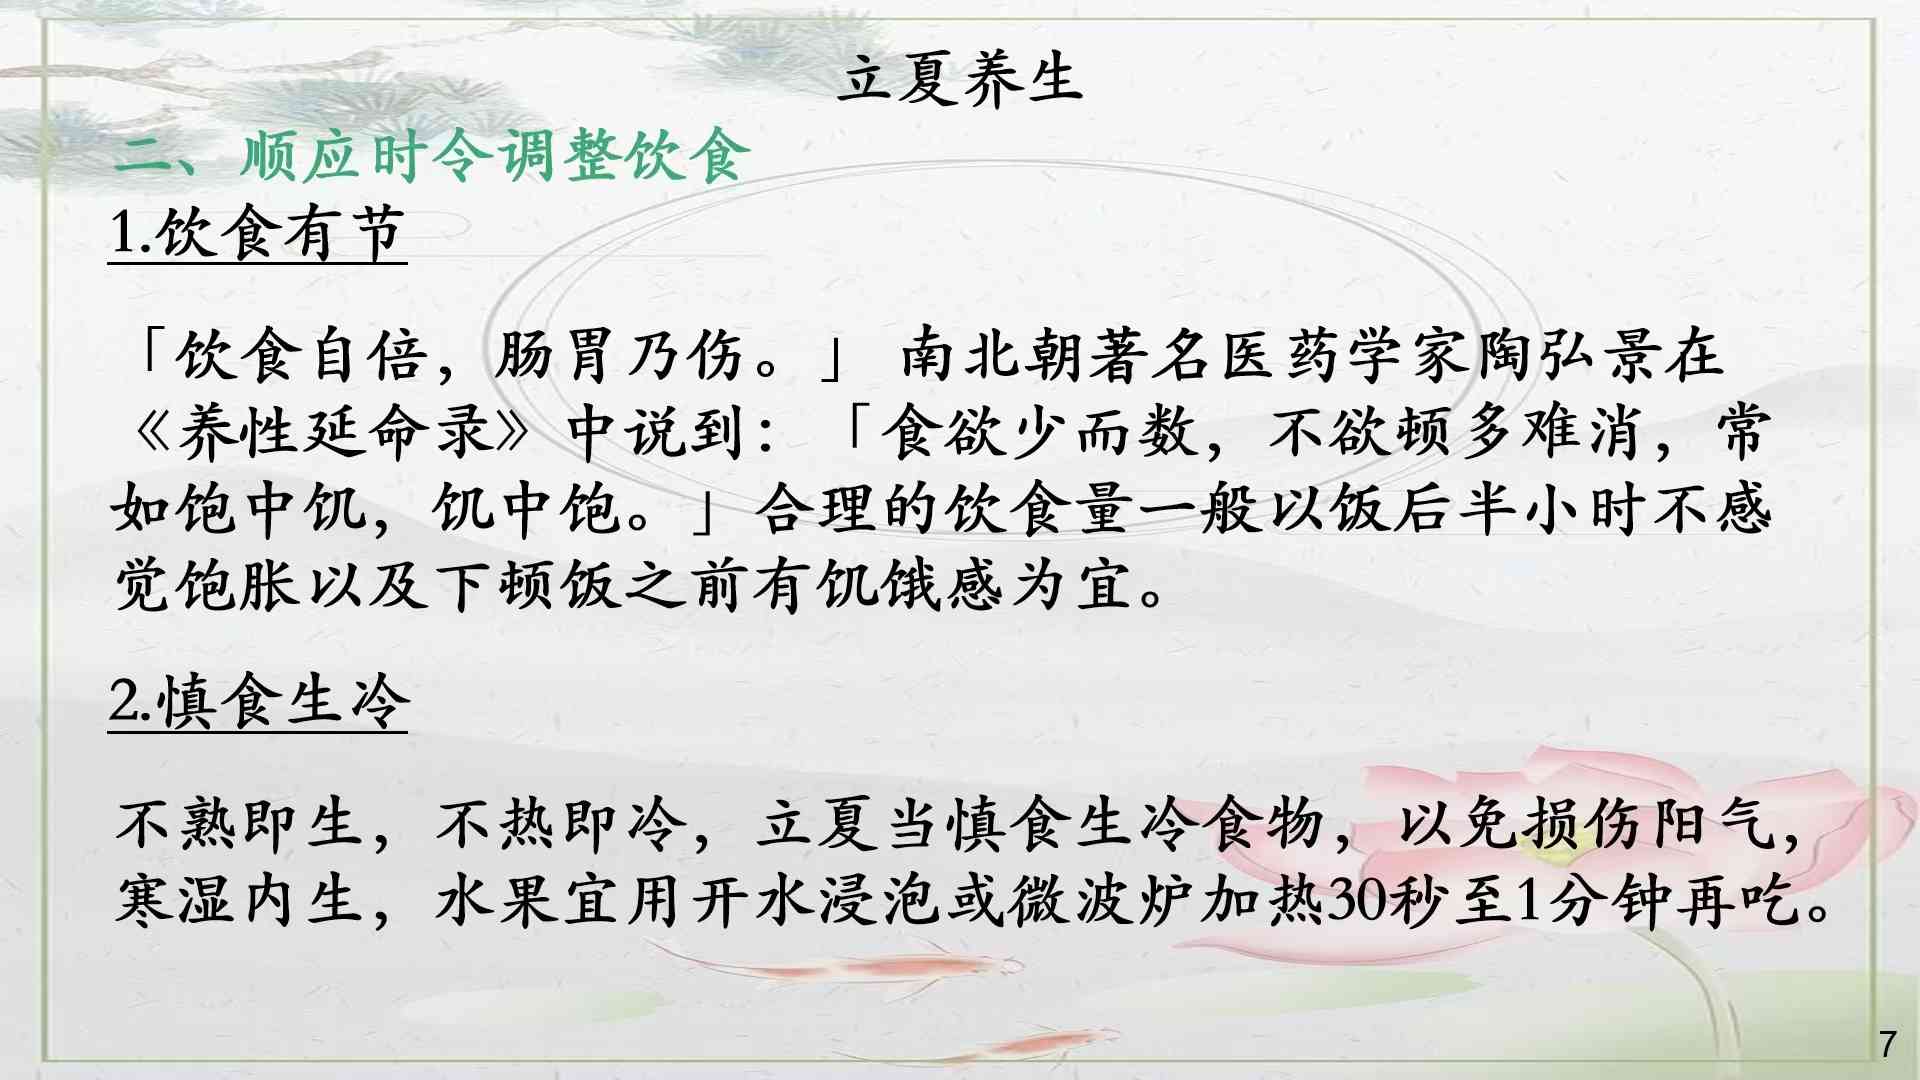 立夏养生
二、顺应时令调整饮食
1.饮食有节
「饮食自倍，肠胃乃伤。」 南北朝著名医药学家陶弘景在
《养性延命录》中说到：「食欲少而数，不欲顿多难消，常
如饱中饥，饥中饱。」合理的饮食量一般以饭后半小时不感
觉饱胀以及下顿饭之前有饥饿感为宜。
2.慎食生冷
不熟即生，不热即冷，立夏当慎食生冷食物，以免损伤阳气，
寒湿内生，水果宜用开水浸泡或微波炉加热30秒至1分钟再吃。
7